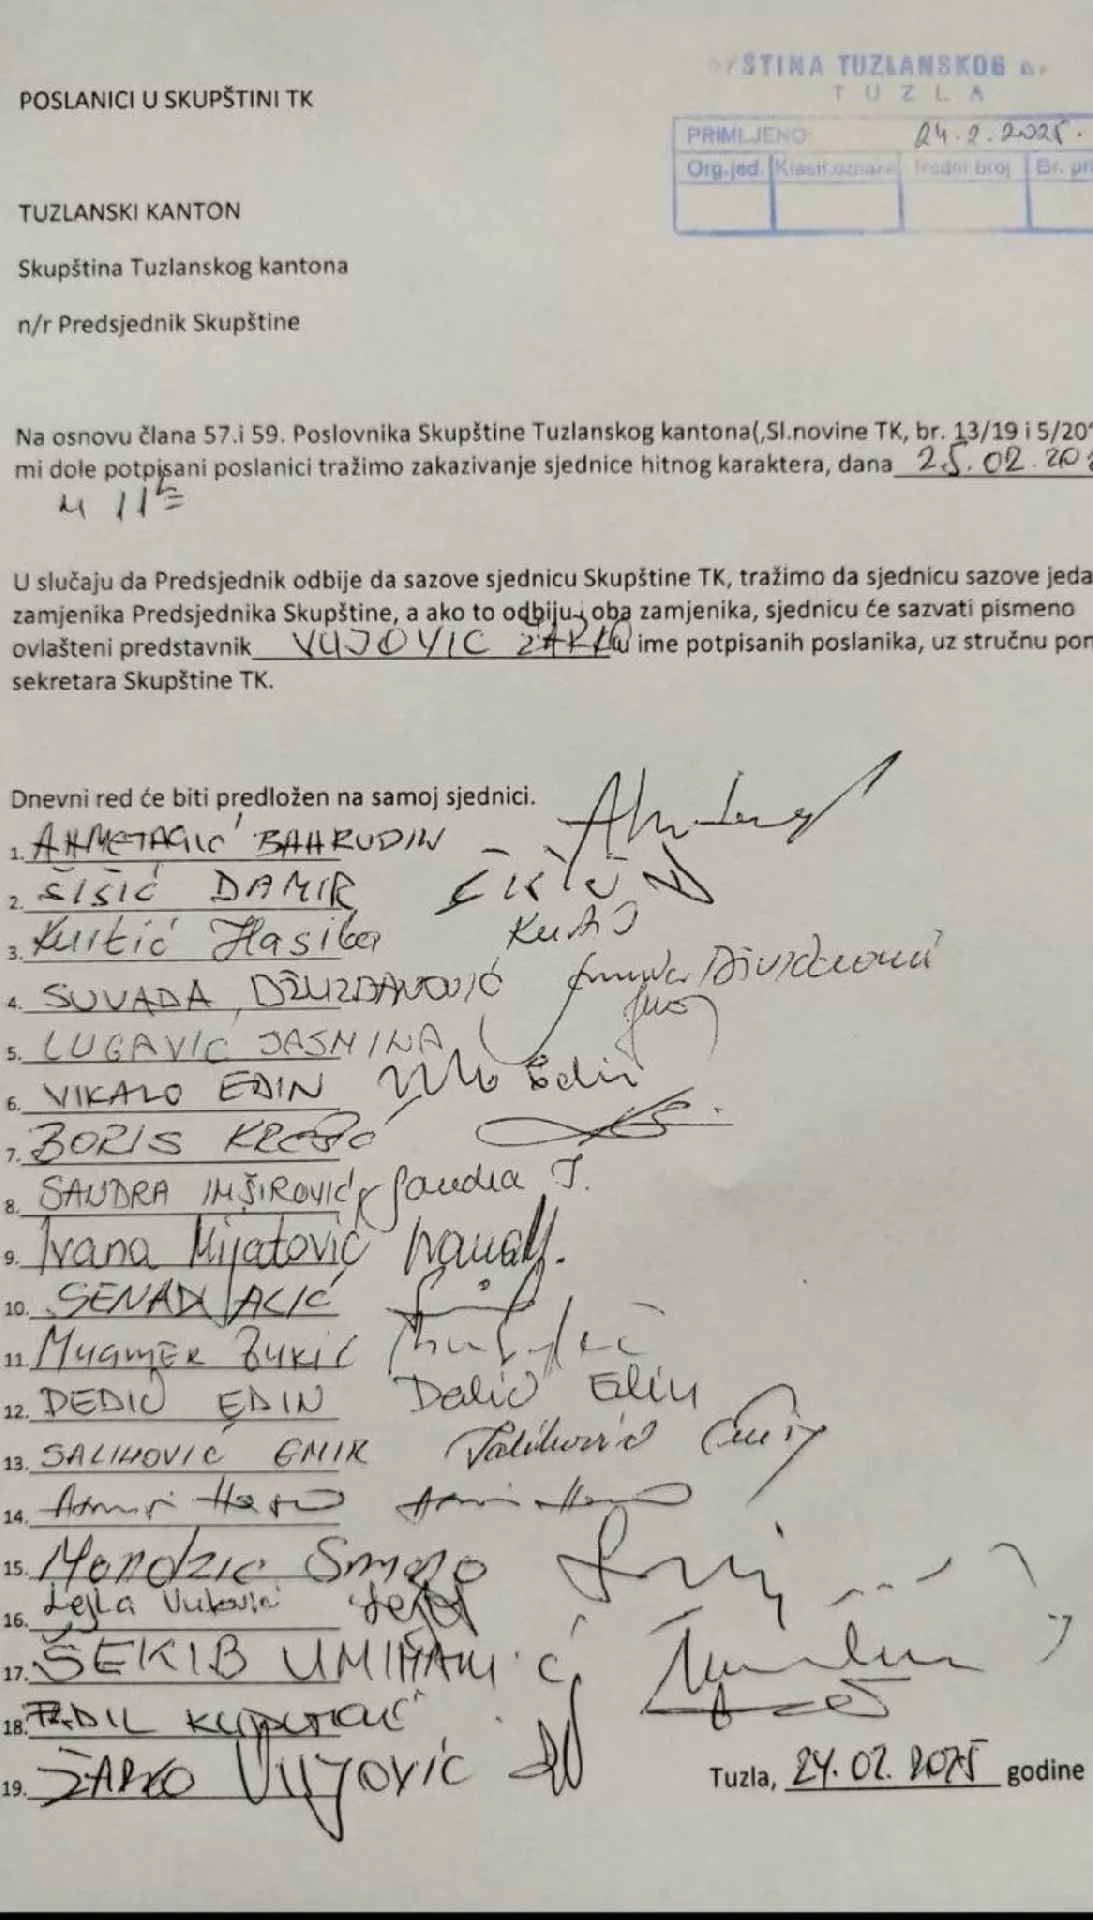 ŠTINA TUZLANSKOG
TUZLA
POSLANICI U SKUPŠTINI TK
PRIMLJENO: 24.2.2025.
Org.jed. Klasif.oznaka Redni broj Br. pri
TUZLANSKI KANTON
Skupština Tuzlanskog kantona
n/r Predsjednik Skupštine
Na osnovu člana 57.i 59. Poslovnika Skupštine Tuzlanskog kantona(,Sl.novine TK, br. 13/19 i 5/20
mi dole potpisani poslanici tražimo zakazivanje sjednice hitnog karaktera, dana 25.02.20
u 11
U slučaju da Predsjednik odbije da sazove sjednicu Skupštine TK, tražimo da sjednicu sazove jeda
zamjenika Predsjednika Skupštine, a ako to odbiju oba zamjenika, sjednicu će sazvati pismeno
ovlašteni predstavnik VUJOVIC ŽARKO u ime potpisanih poslanika, uz stručnu pom
sekretara Skupštine TK.
Dnevni red će biti predložen na samoj sjednici.
1. AHMETAGIĆ BAHRUDIN
2. ŠIŠIĆ DAMIR
3. Kurtić Hasiba
4. SUVADA DŽUZDANOVIĆ
5. LUGAVIĆ JASMINA
6. VIKALO EDIN Edin
7. BORIS KREŠIĆ
8. SANDRA IMŠIROVIĆ Sandra I.
9. Ivana Mijatović Ivana M.
10. SENAD ALIĆ
11. Muamer Zukić
12. DEDIĆ EDIN Dedić Edin
13. SALIHOVIĆ EMIR Salihović Emir
14.
15. Mandzic Smajo
16. Lejla Vuković Lejla
17. ŠEKIB UMIHANIĆ
18. FADIL
19. ŽARKO VUJOVIĆ
Tuzla, 24.02.2025 godine